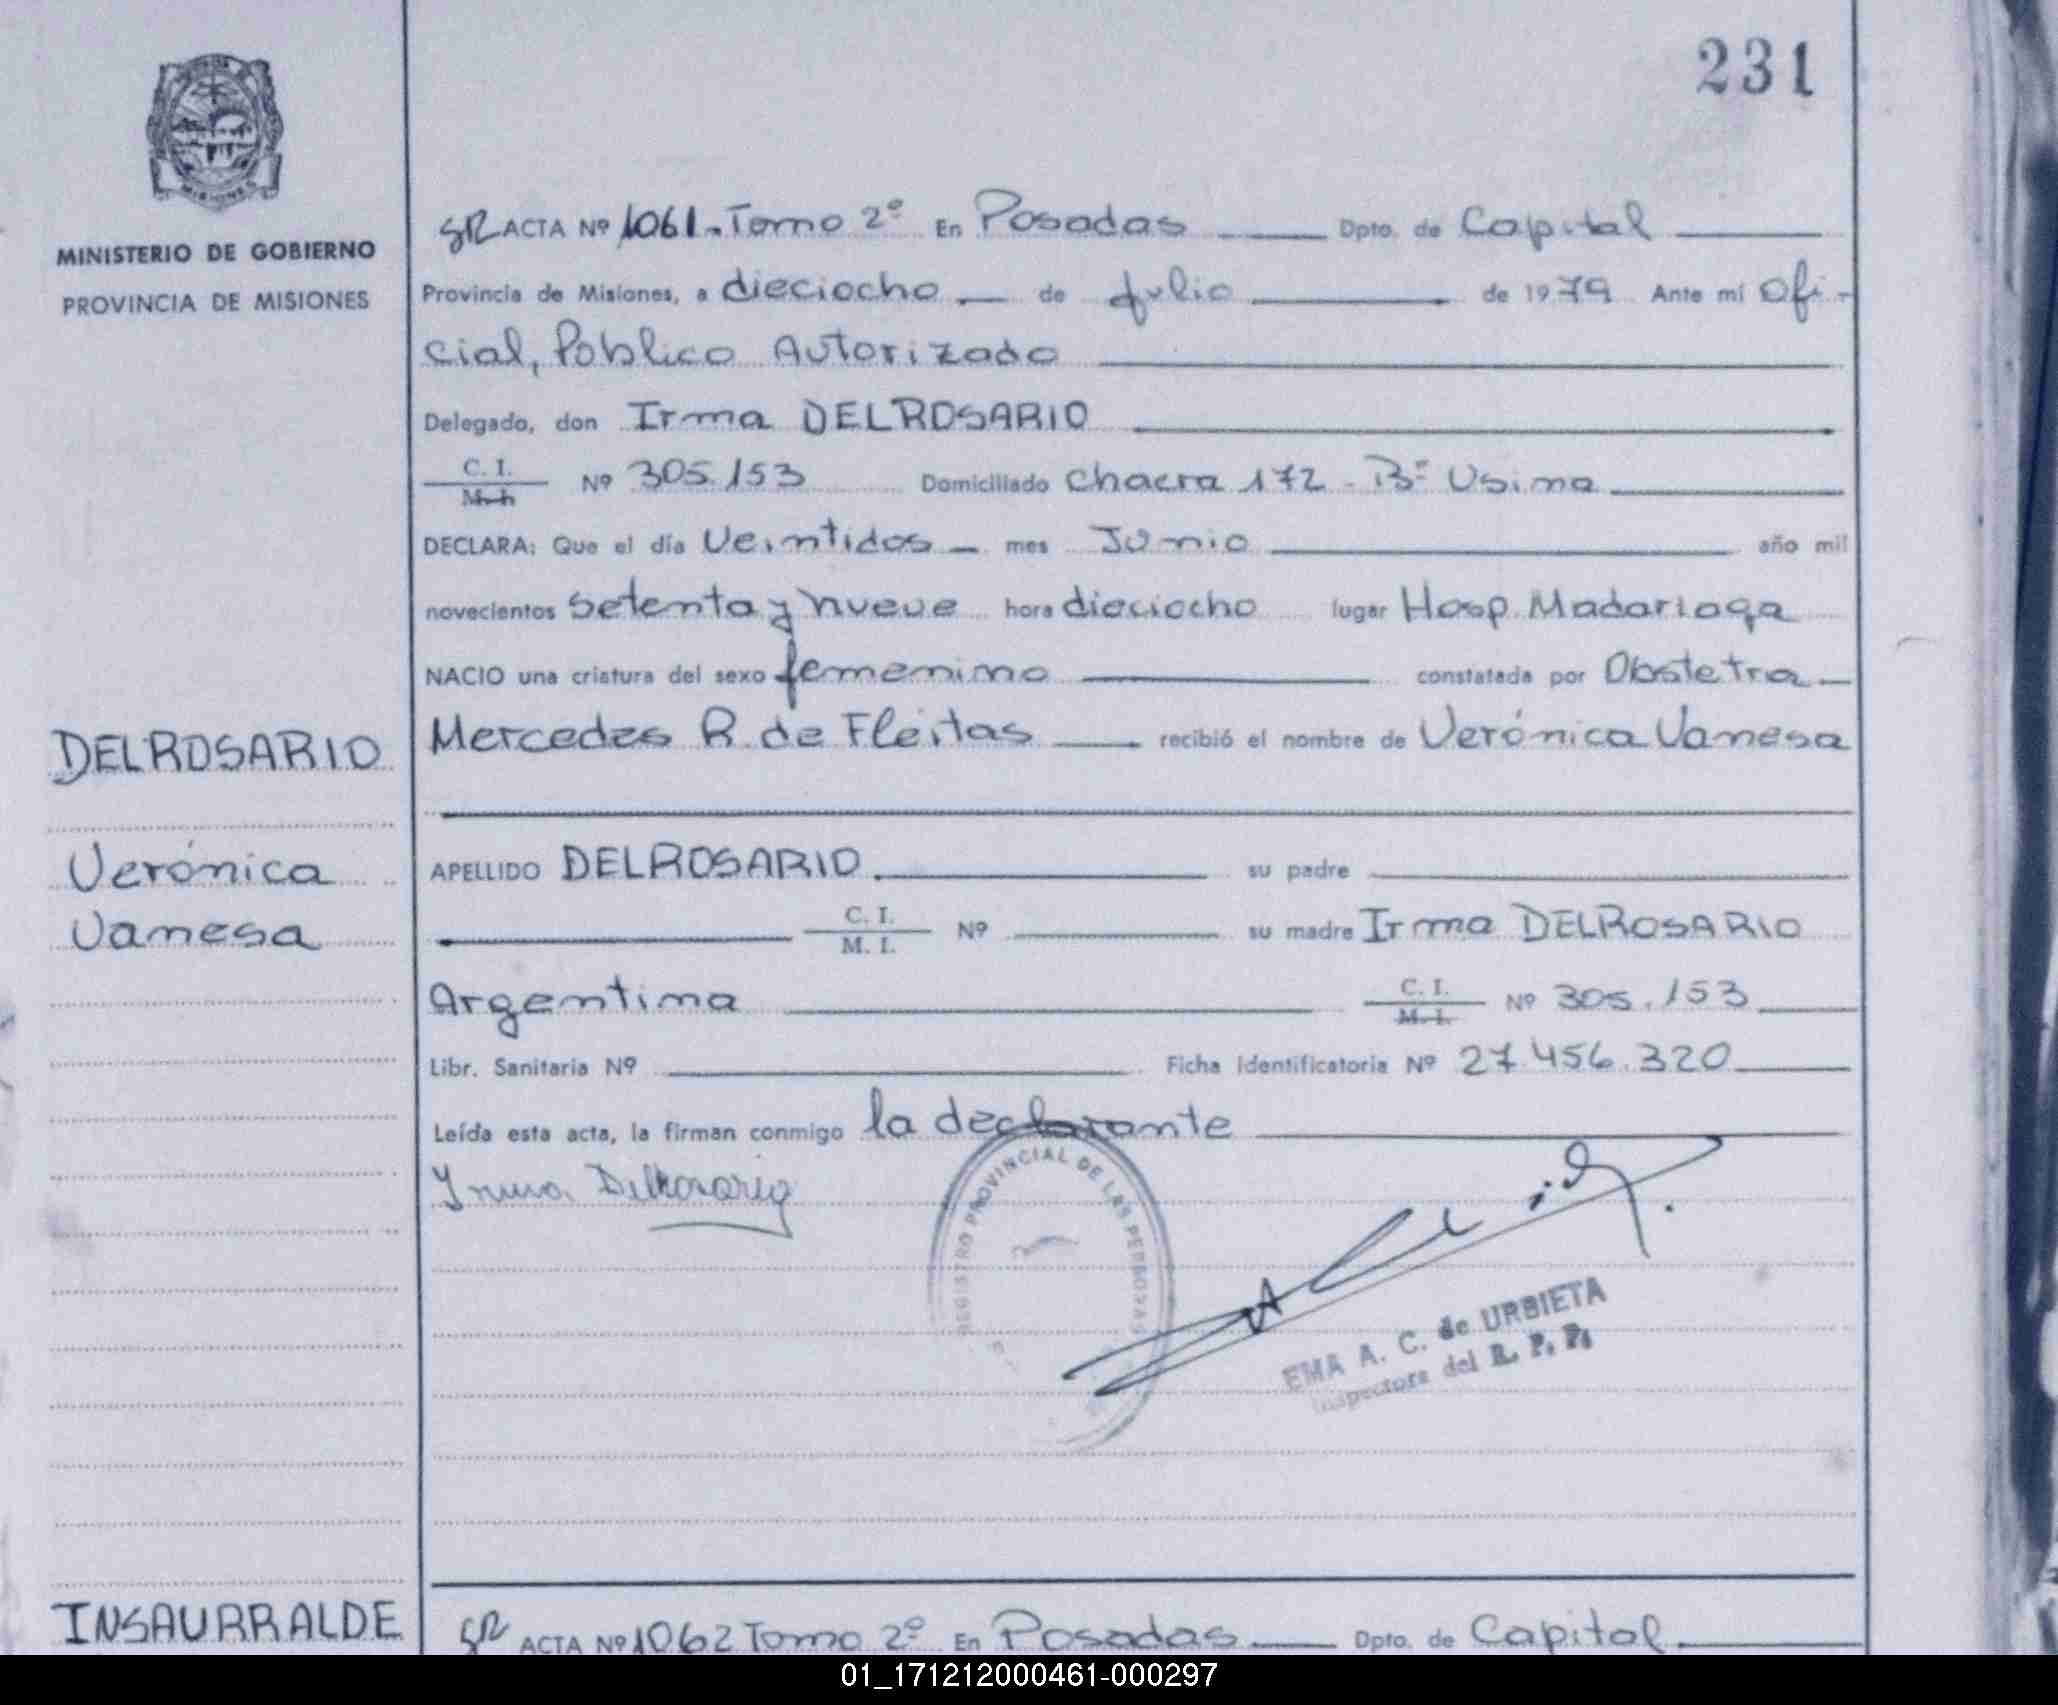 231
MISIONES
MINISTERIO DE GOBIERNO
PROVINCIA DE MISIONES
DELROSARIO
Verónica
Vanesa
SR ACTA Nº 1061. Tomo 2º En Posadas Dpto. de Capital
Provincia de Misiones, a dieciocho de julio de 1979 Ante mí Ofi-
cial, Público Autorizado
Delegado, don Irma DELROSARIO
C. I.
M. I. Nº 305.153 Domiciliado chacra 172 - Bº Usina
DECLARA: Que el día Veintidos mes Junio año mil
novecientos setenta y nueve hora dieciocho lugar Hosp. Madariaga
NACIO una criatura del sexo femenino constatada por Obstetra
Mercedes R. de Fleitas recibió el nombre de Verónica Vanesa
APELLIDO DELROSARIO su padre
C. I.
M. I. Nº su madre Irma DELROSARIO
Argentina C. I.
M. I. Nº 305.153
Libr. Sanitaria Nº Ficha Identificatoria Nº 27.456.320
Leída esta acta, la firman conmigo la declarante
Irma DelRosario
REGISTRO PROVINCIAL DE LAS PERSONAS
EMA A. C. de URBIETA
Inspectora del R. P. P.
INSAURRALDE
SR ACTA Nº 1062 Tomo 2º En Posadas Dpto. de Capital
01_171212000461-000297